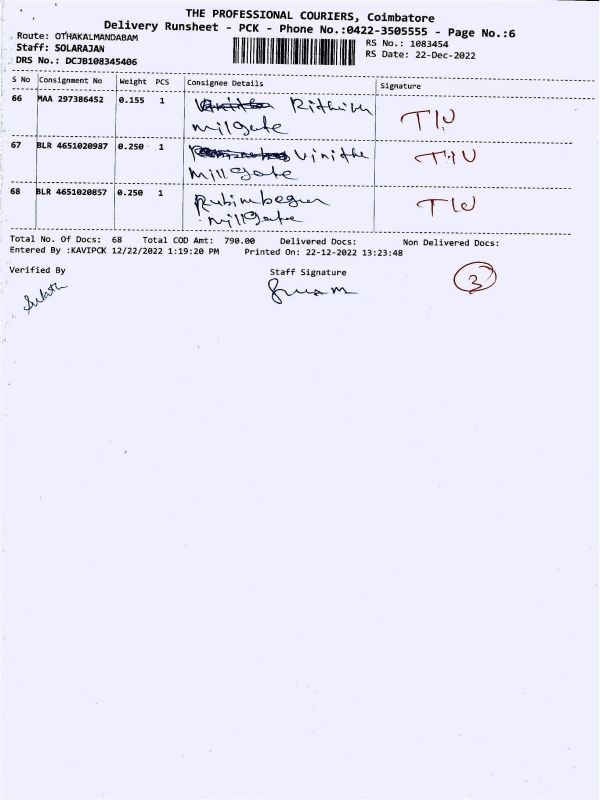 THE PROFESSIONAL COURIERS, Coimbatore
Delivery Runsheet - PCK - Phone No.:0422-3505555 - Page No.:6
Route: OTHAKALMANDABAM
Staff: SOLARAJAN
DRS No.: DCJB108345406
RS No.: 1083454
RS Date: 22-Dec-2022
S No Consignment No Weight PCS Consignee Details Signature
66 MAA 297386452 0.155 1 Rithika
millgate
67 BLR 4651020987 0.250 1 Vinitha
Millgate
68 BLR 4651020857 0.250 1 Rubimbegum
millgate
Total No. Of Docs: 68 Total COD Amt: 790.00 Delivered Docs: Non Delivered Docs:
Entered By :KAVIPCK 12/22/2022 1:19:20 PM Printed On: 22-12-2022 13:23:48
Verified By Staff Signature
3